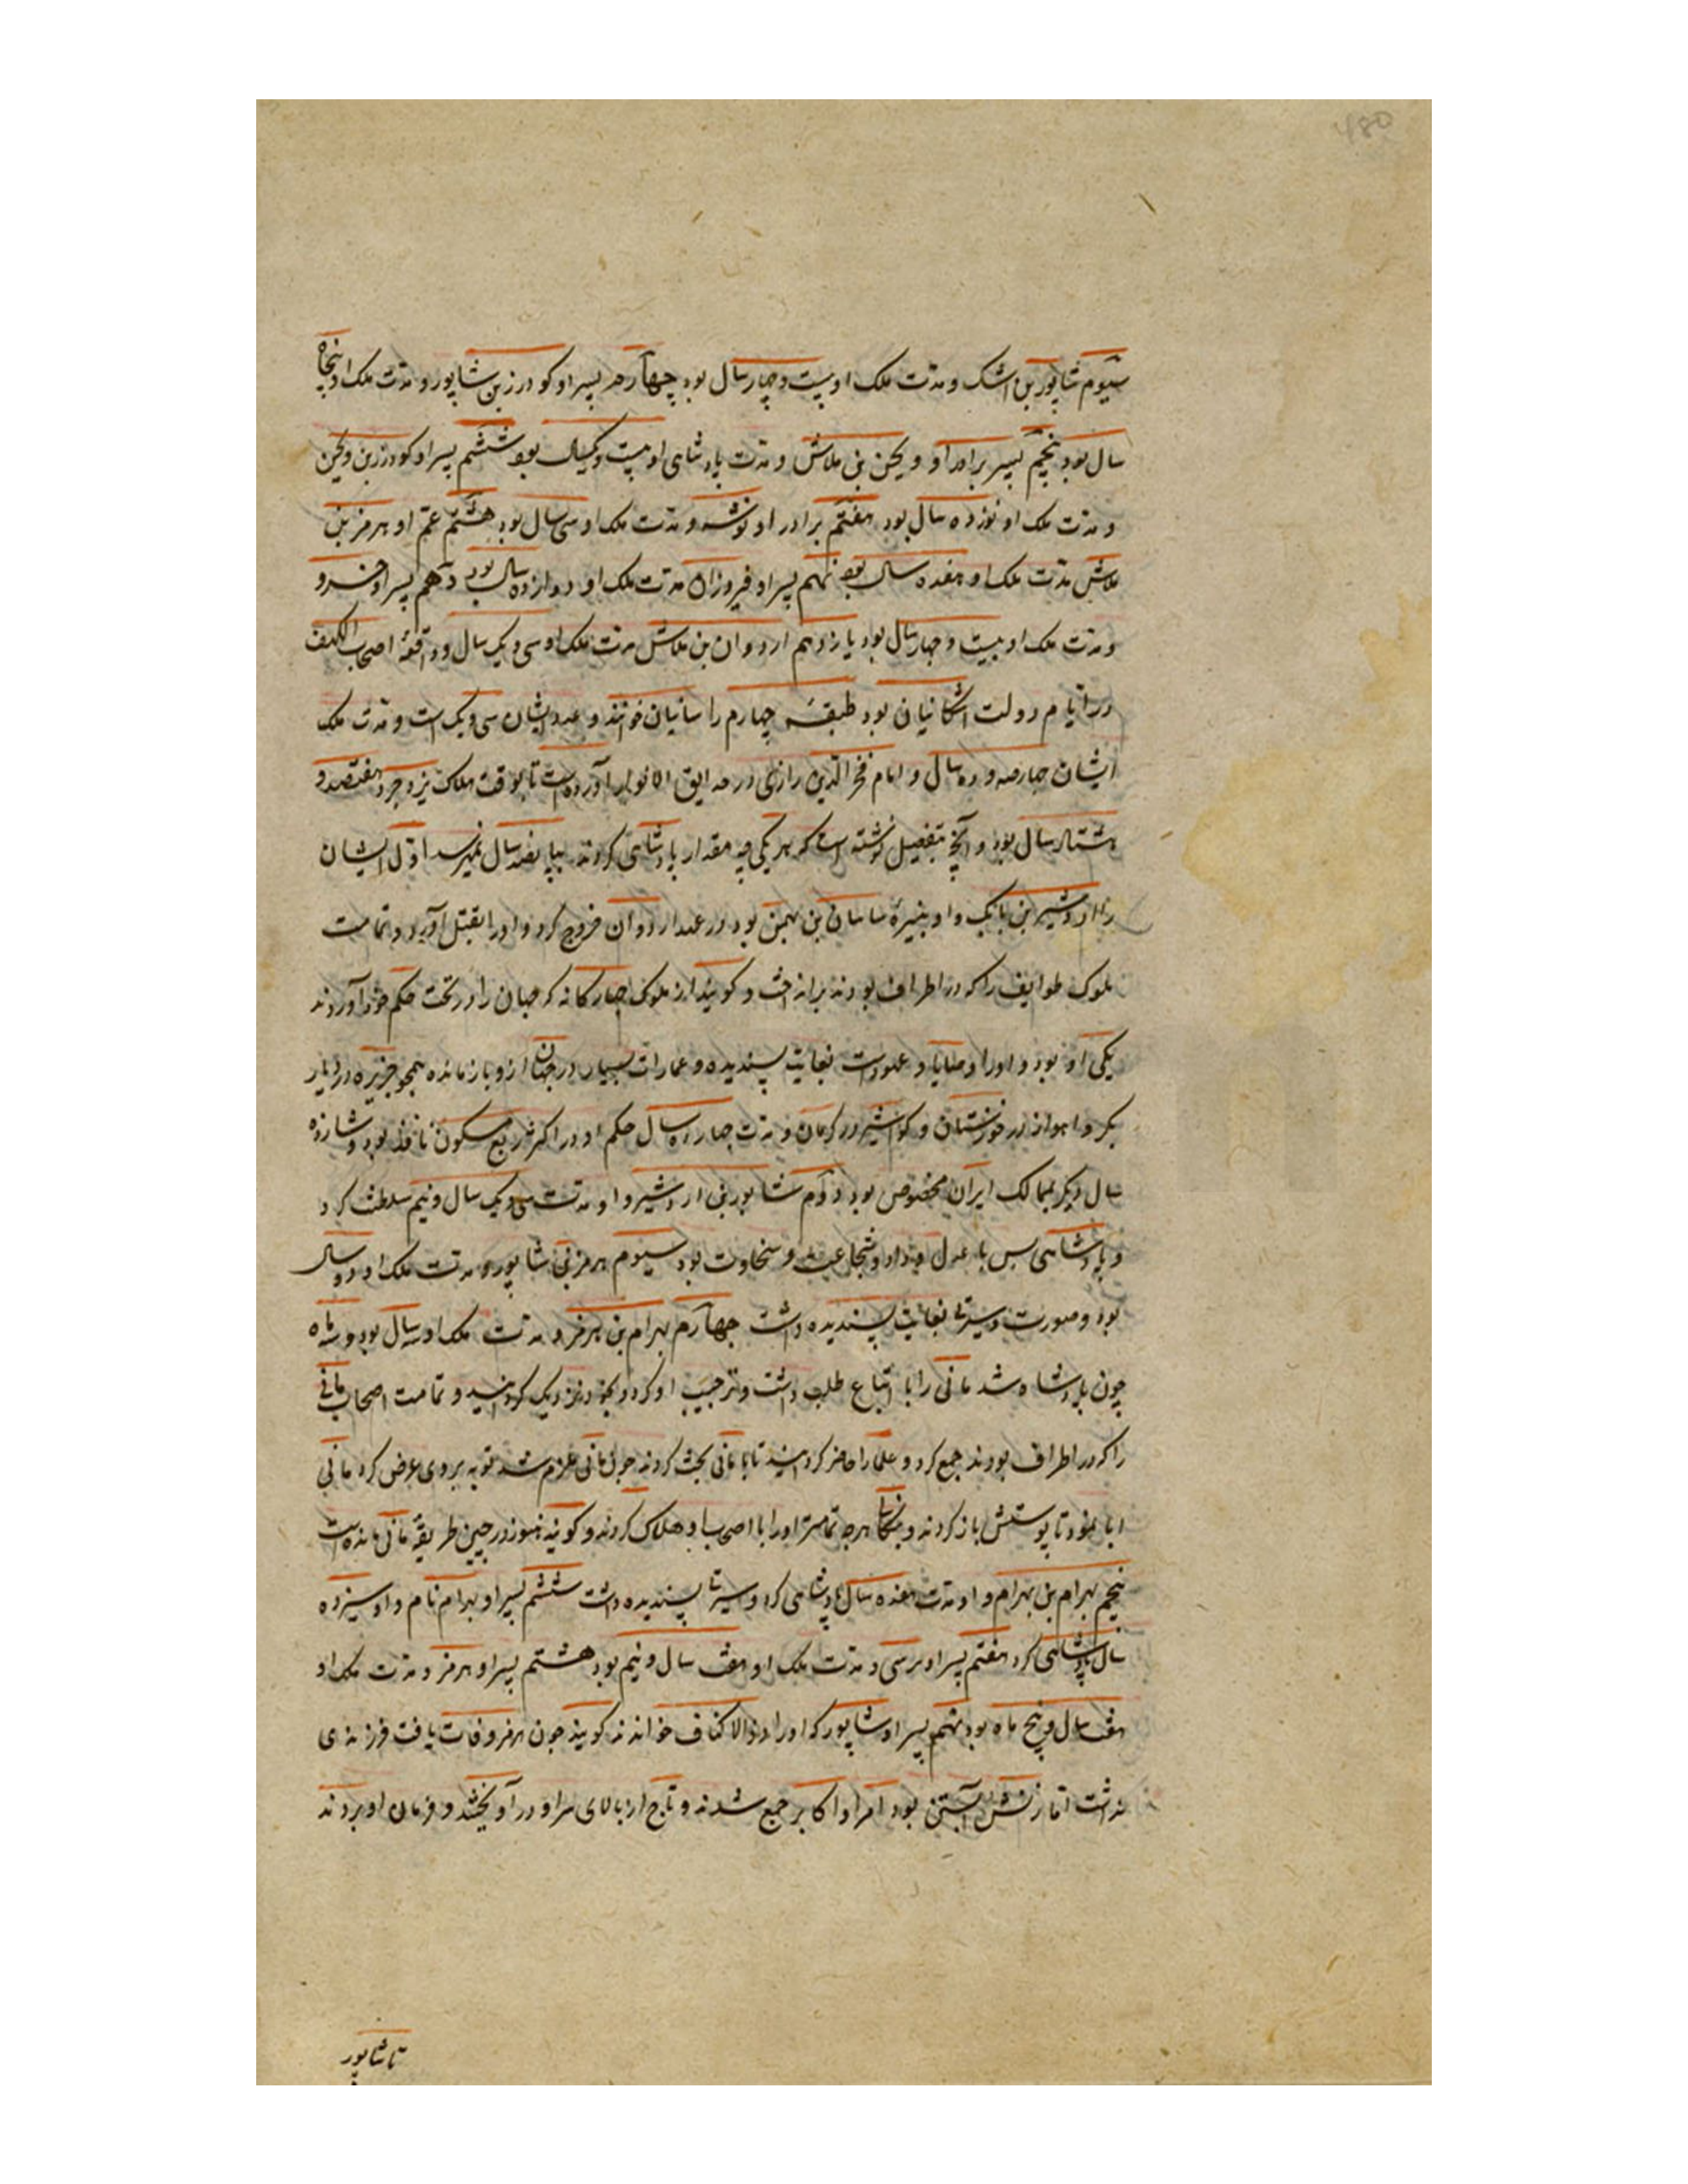 سیوم شاپور بن اشک و مدت ملک او بیست و چهار سال بود چهارم پسر او کودرز بن شاپور و مدت ملک او پنجاه
سال بود پنجم پسر برادر او ویجن بن بلاش و مدت پادشاهی او بیست و یکسال بود ششم پسر او کودرز بن ویجن
و مدت ملک او نوزده سال بود هفتم برادر او نوشه و مدت ملک او سی سال بود هشتم عم او هرمز بن
بلاش مدت ملک او هفده سال بود نهم پسر او فیروزان مدت ملک او دوازده سال بود دهم پسر او خسرو
و مدت ملک او بیست و چهار سال بود یازدهم اردوان بن بلاش مدت ملک او سی و یک سال و واقعهٔ اصحاب الکهف
در ایام دولت اشکانیان بود طبقهٔ چهارم را سانیان خوانند و عدد ایشان سی و یک است و مدت ملک
ایشان چهارصد و ده سال و امام فخر الدین رازی در حدایق الانوار آورده است تا بوقت هلاک یزدجرد هفتصد و
هشتاد سال بود و آنچ بتفصیل نوشته است که هر یکی چه مقدار پادشاهی کردند بپانصد سال نمیرسد اول ایشان
اردشیر بن بابک و او بنیرهٔ ساسان بن بهمن بود در عهد اردوان خروج کرد و او را بقتل آورد و تمامت
ملوک طوایف را که در اطراف بودند برانداخت و کویند از ملوک چهارکانه که جهان را در تحت حکم خود آوردند
یکی او بود و او را وصایا و عهود است بغایت پسندیده و عمارات بسیار در جهان ازو باز مانده همچو جزیره در دیار
بکر و اهواز در خوزستان و کواشیر در کرمان و مدت چهارده سال حکم او در اکثر ربع مسکون نافذ بود و شانزده
سال دیکر بممالک ایران مخصوص بود دوم شاپور بن اردشیر و او مدت سی و یک سال و نیم سلطنت کرد
و پادشاهی بس با عدل و داد و شجاعت و سخاوت بود سیوم هرمز بن شاپور و مدت ملک او دو سال
بود و صورت و سیرتی بغایت پسندیده داشت چهارم بهرام بن هرمز و مدت ملک او سه سال بود و سه ماه
چون پادشاه شد مانی را با اتباع طلب داشت و ترحیب او کرد و بخود نزدیک کردانید و تمامت اصحاب مانی
را که در اطراف بودند جمع کرد و علما را حاضر کردانید تا با مانی بحث کردند چون مانی ملزم شد توبه بر وی عرض کرد مانی
ابا نمود تا پوستش باز کردند و بنکال هرچه تمامتر او را با اصحاب او هلاک کردند و کویند هنوز در چین طریقهٔ مانی مانده است
پنجم بهرام بن بهرام و او مدت هفده سال پادشاهی کرد و سیرتی پسندیده داشت ششم پسر او بهرام نام و او سیزده
سال پادشاهی کرد هفتم پسر او نرسی و مدت ملک او هفت سال و نیم بود هشتم پسر او هرمز و مدت ملک او
هفت سال و پنج ماه بود نهم پسر او شاپور که او را ذوالاکتاف خوانند کویند چون هرمز وفات یافت فرزندی
نداشت اما زنش آبستن بود امرا و اکابر جمع شدند و تاج از بالای سر او در آویختند و فرمان او بردند
تا شاپور